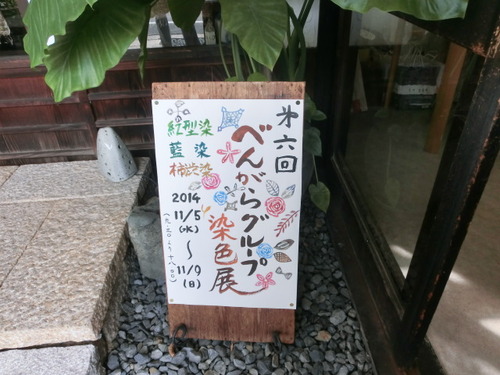 第六回
べんがらグループ
染色展
紅型染
藍染
柿渋染
2014
11/5
(水)
〜
11/9
(日)